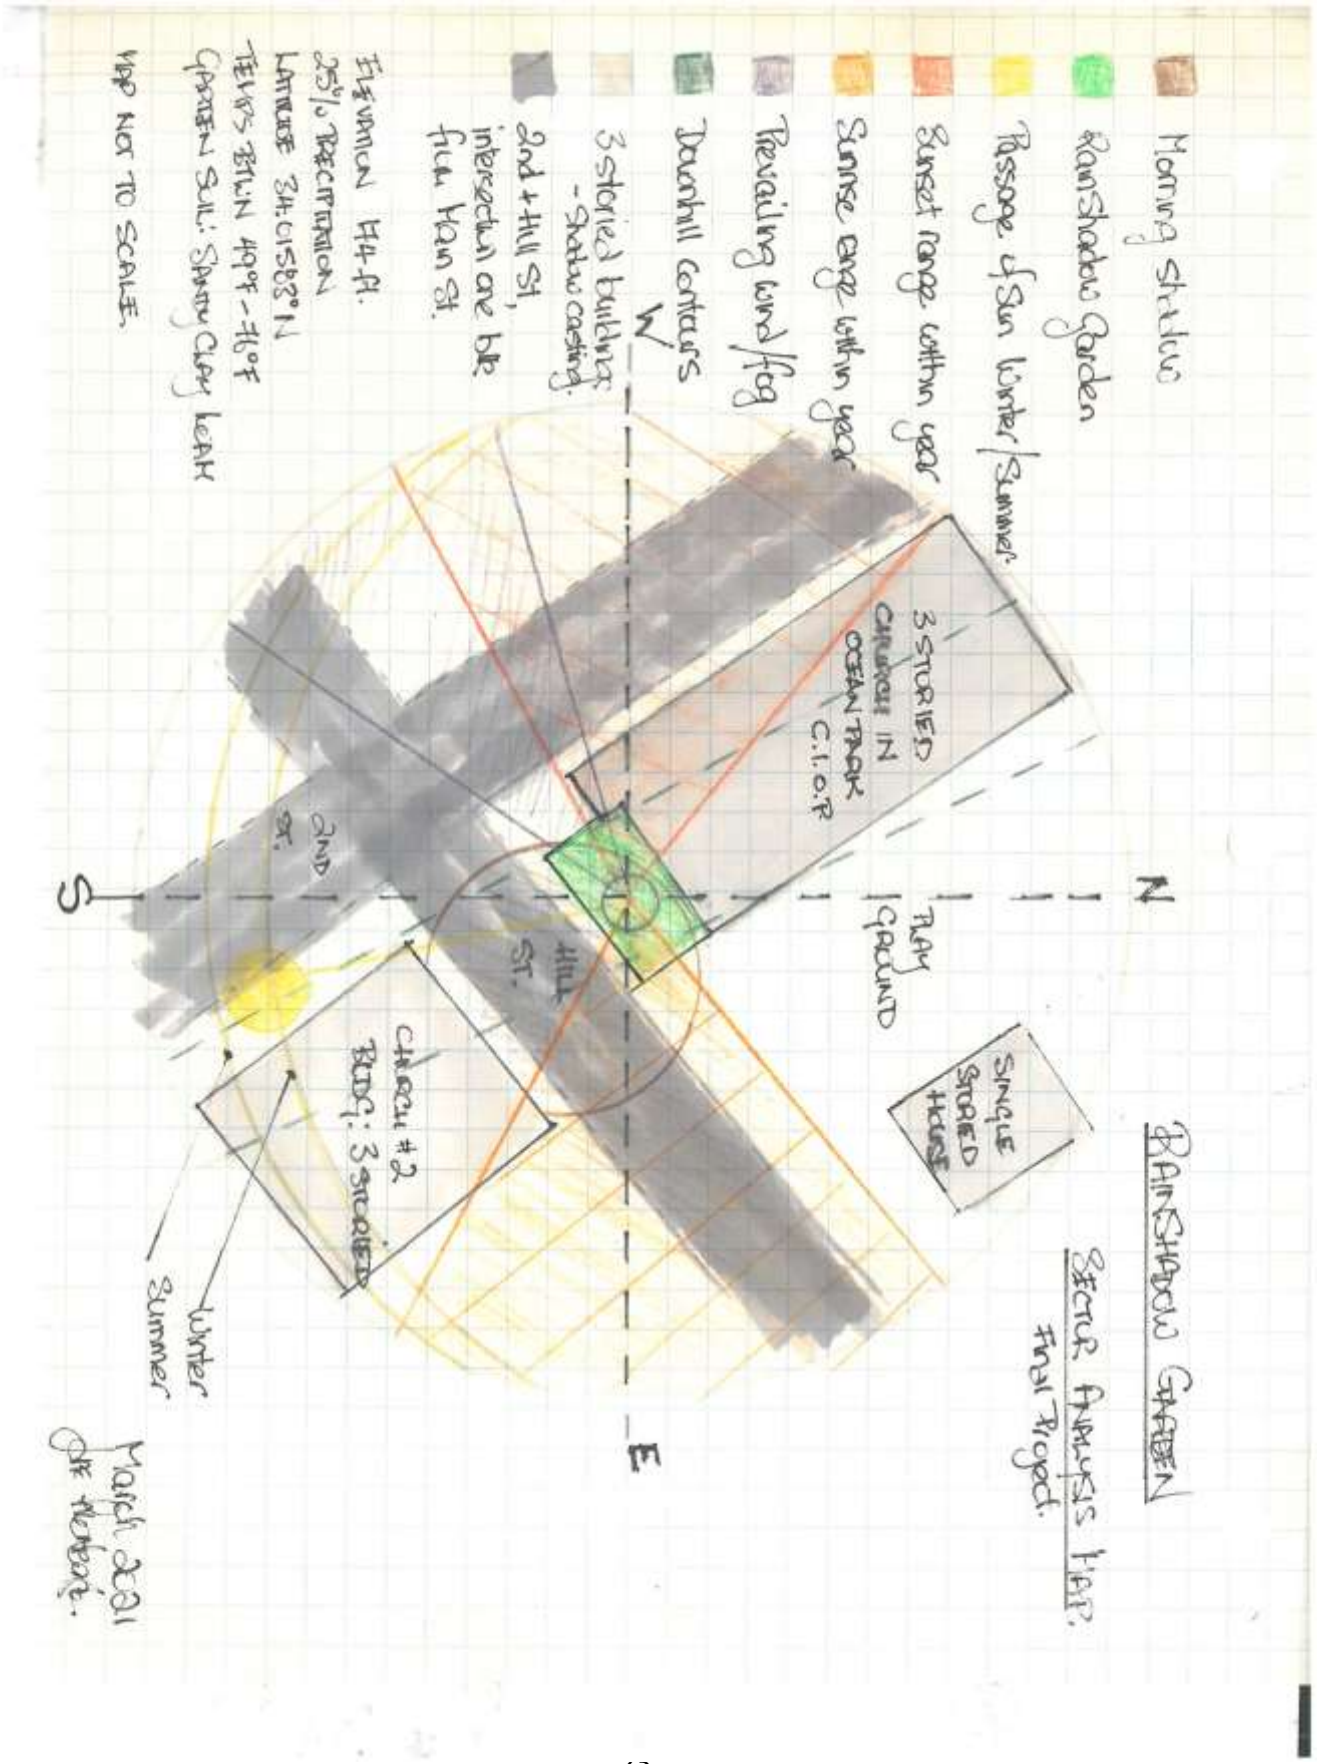 RAINSHADOW GARDEN
SECTOR ANALYSIS MAP.
Final Project.
Morning Shadow
RainShadow Garden
Passage of Sun Winter/Summer.
Sunset range within year
Sunrise range within year
Prevailing wind/fog
Downhill contours
3 storied buildings
- Shadow casting.
2nd + Hill St,
intersection one blk
from Main St.
ELEVATION 174 ft.
25% PRECIPITATION
LATITUDE 34.01583°N
TEMPS BTWN 49°F - 76°F
GARDEN SOIL: SANDY CLAY LOAM
MAP NOT TO SCALE.
N
W
E
S
3 STORIED
CHURCH IN
OCEAN PARK
C.I.O.P
PLAY
GROUND
SINGLE
STORIED
HOUSE
HILL
ST.
2ND
ST.
CHURCH #2
BLDG: 3 STORIED
Winter
Summer
March 2021